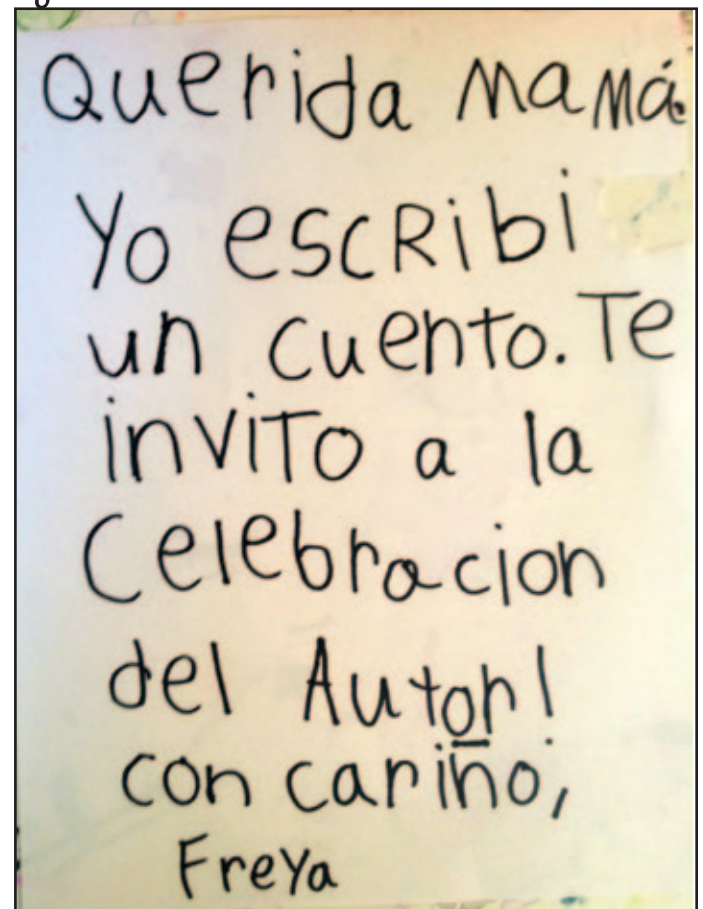 Querida Mamá
Yo escribi
un cuento. Te
invito a la
Celebracion
del Autor!
con cariño,
Freya